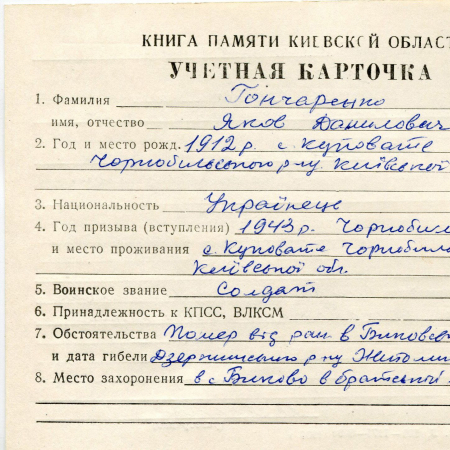 КНИГА ПАМЯТИ КИЕВСКОЙ ОБЛАСТ
УЧЕТНАЯ КАРТОЧКА
1. Фамилия Гончаренко
имя, отчество Яков Данилович
2. Год и место рожд. 1912 р. с. Куповате
Чорнобильського р-ну Київської
3. Национальность Українець
4. Год призыва (вступления) 1943 р. Чорнобил
и место проживания с. Куповате Чорнобил
Київської обл.
5. Воинское звание Солдат
6. Принадлежность к КПСС, ВЛКСМ
7. Обстоятельства Помер від ран в
и дата гибели Дзержинського р-ну Житоми
8. Место захоронения в с Биково в братській